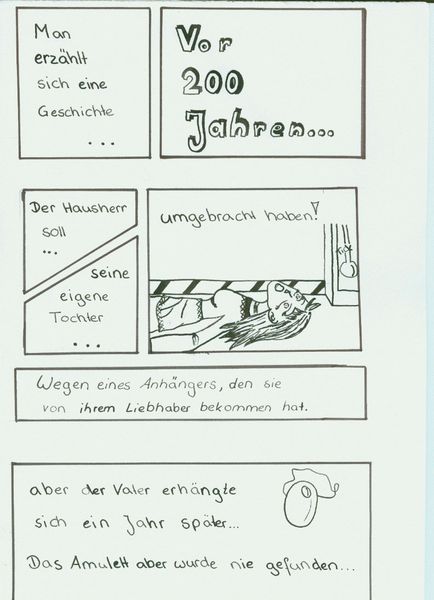 Man
erzählt
sich eine
Geschichte
...
Vor
200
Jahren...
Der Hausherr
soll
...
seine
eigene
Tochter
...
umgebracht haben!
Wegen eines Anhängers, den sie
von ihrem Liebhaber bekommen hat.
aber der Vater erhängte
sich ein Jahr später...
Das Amulett aber wurde nie gefunden...